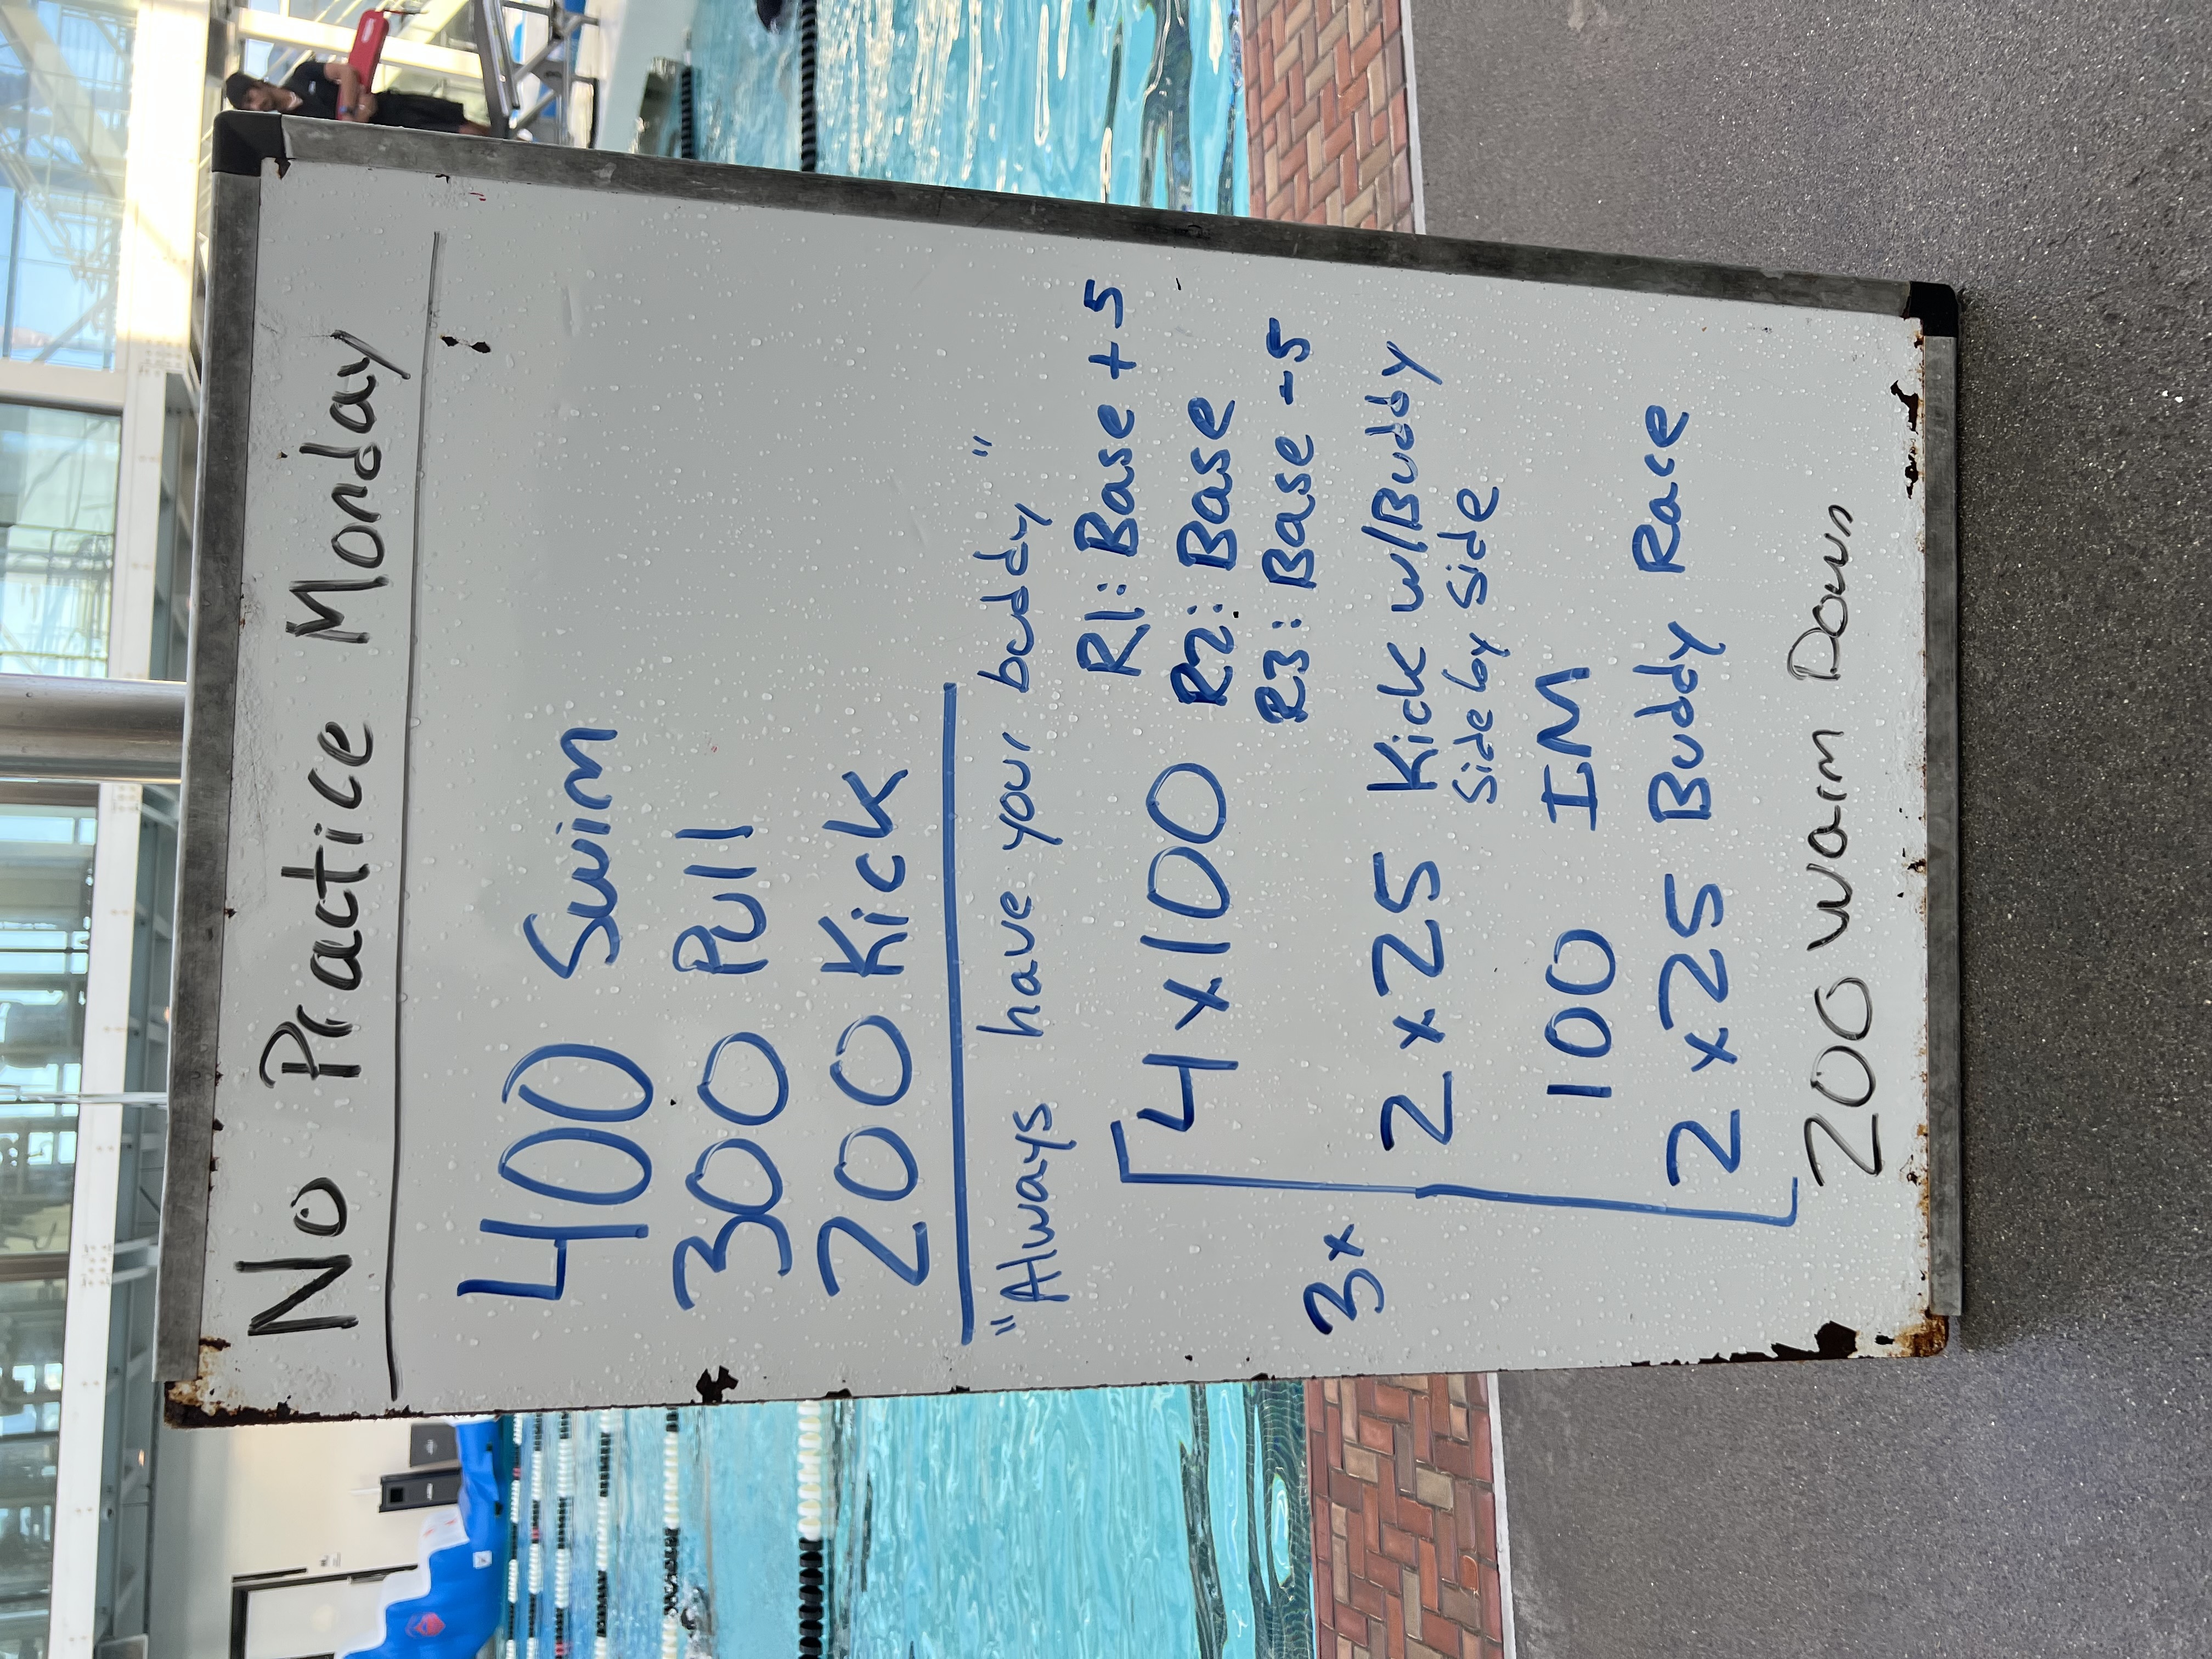 No Practice Monday
400 Swim
300 Pull
200 Kick
"Always have your buddy"
3x
4x100 R1: Base +5
R2: Base
R3: Base -5
2x25 Kick w/Buddy
Side by Side
100 IM
2x25 Buddy Race
200 Warm Down